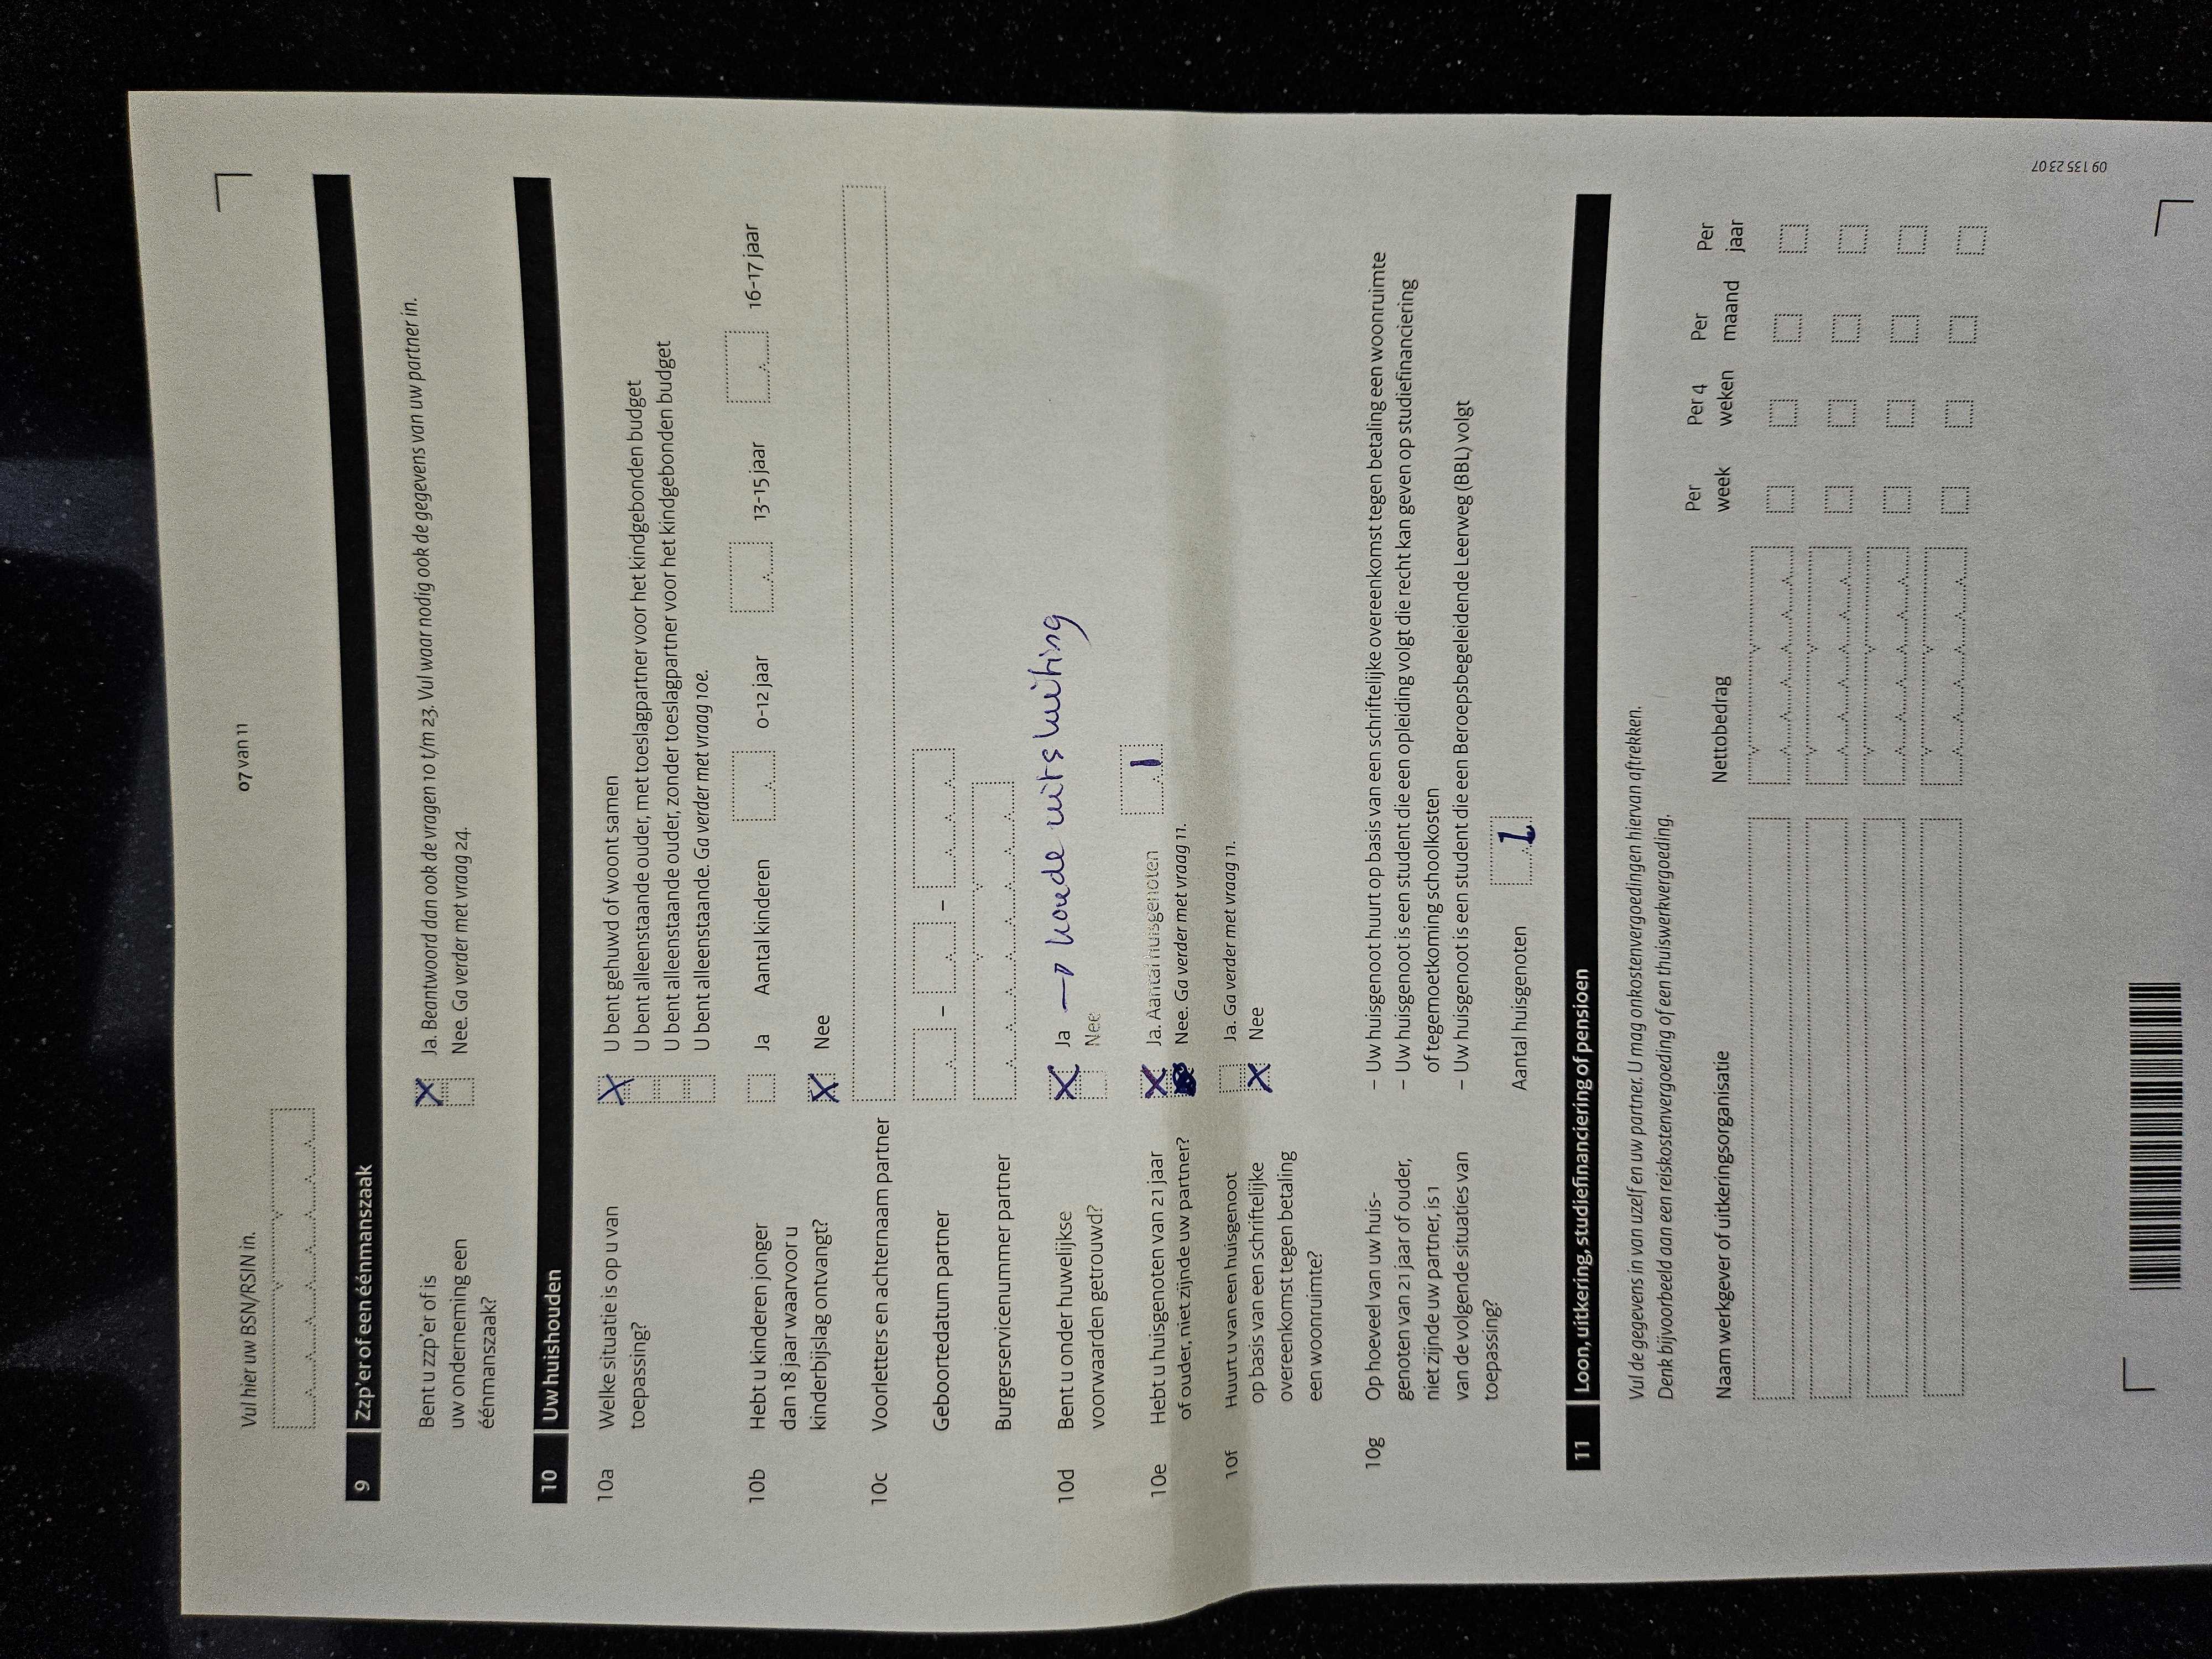 Vul hier uw BSN/RSIN in.
07 van 11
9 Zzp'er of een éénmanszaak
Bent u zzp'er of is
uw onderneming een
éénmanszaak?
Ja. Beantwoord dan ook de vragen 10 t/m 23. Vul waar nodig ook de gegevens van uw partner in.
Nee. Ga verder met vraag 24.
10 Uw huishouden
10a Welke situatie is op u van
toepassing?
U bent gehuwd of woont samen
U bent alleenstaande ouder, met toeslagpartner voor het kindgebonden budget
U bent alleenstaande ouder, zonder toeslagpartner voor het kindgebonden budget
U bent alleenstaande. Ga verder met vraag 10e.
10b Hebt u kinderen jonger
dan 18 jaar waarvoor u
kinderbijslag ontvangt?
Ja Aantal kinderen 0-12 jaar 13-15 jaar 16-17 jaar
Nee
10c Voorletters en achternaam partner
Geboortedatum partner – –
Burgerservicenummer partner
10d Bent u onder huwelijkse
voorwaarden getrouwd?
Ja → koude uitsluiting
Nee
10e Hebt u huisgenoten van 21 jaar
of ouder, niet zijnde uw partner?
Ja. Aantal huisgenoten 1
Nee. Ga verder met vraag 11.
10f Huurt u van een huisgenoot
op basis van een schriftelijke
overeenkomst tegen betaling
een woonruimte?
Ja. Ga verder met vraag 11.
Nee
10g Op hoeveel van uw huis-
genoten van 21 jaar of ouder,
niet zijnde uw partner, is 1
van de volgende situaties van
toepassing?
– Uw huisgenoot huurt op basis van een schriftelijke overeenkomst tegen betaling een woonruimte
– Uw huisgenoot is een student die een opleiding volgt die recht kan geven op studiefinanciering
of tegemoetkoming schoolkosten
– Uw huisgenoot is een student die een Beroepsbegeleidende Leerweg (BBL) volgt
Aantal huisgenoten 1
11 Loon, uitkering, studiefinanciering of pensioen
Vul de gegevens in van uzelf en uw partner. U mag onkostenvergoedingen hiervan aftrekken.
Denk bijvoorbeeld aan een reiskostenvergoeding of een thuiswerkvergoeding.
Naam werkgever of uitkeringsorganisatie
Nettobedrag
Per
week
Per 4
weken
Per
maand
Per
jaar
09 135 23 07